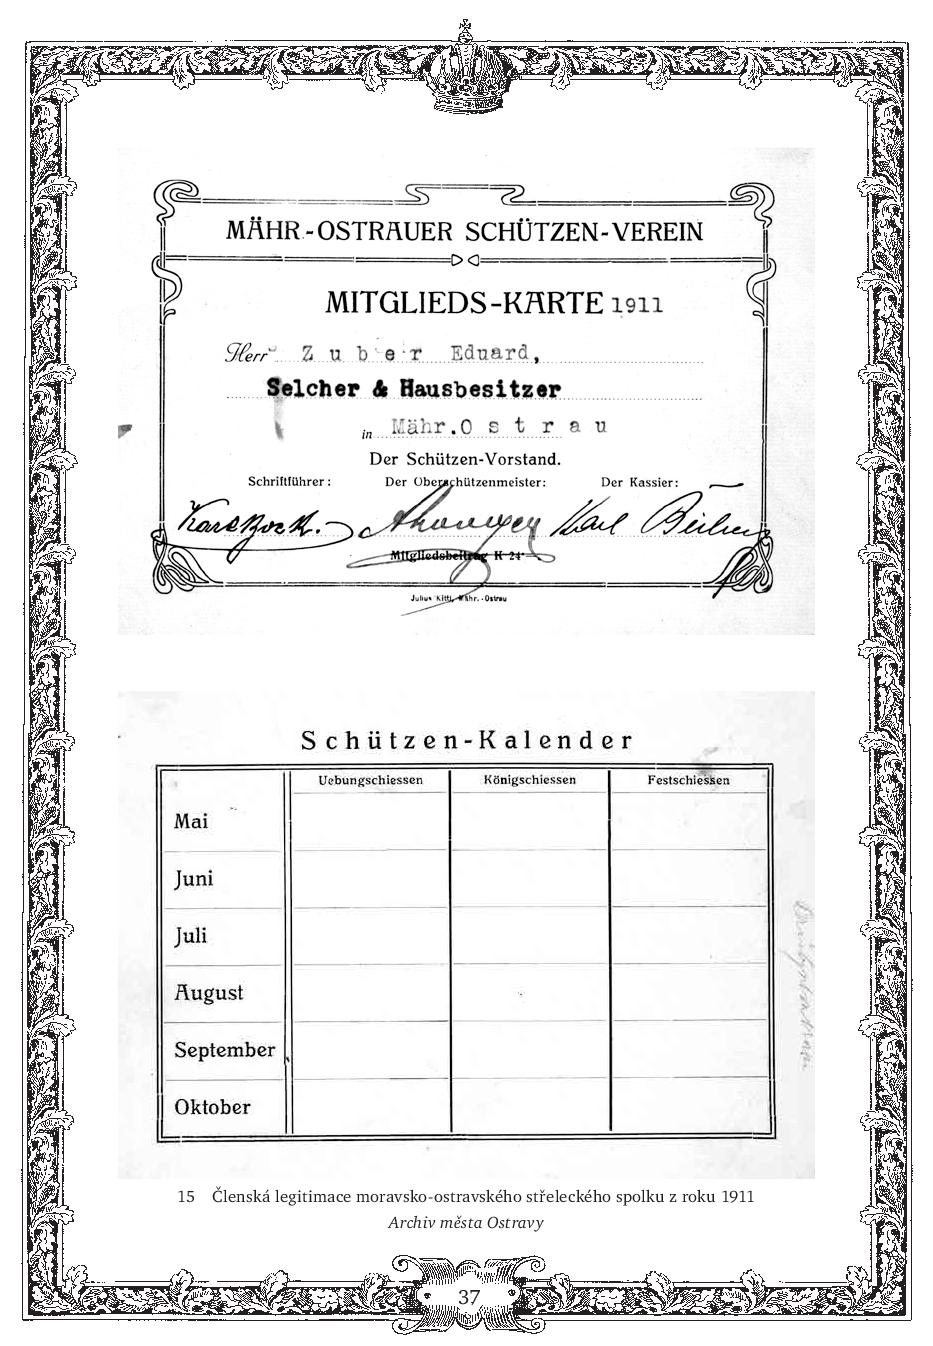 MÄHR.-OSTRAUER SCHÜTZEN-VEREIN
MITGLIEDS-KARTE 1911
Herr Zuber Eduard,
Selcher & Hausbesitzer
in Mähr.Ostrau
Der Schützen-Vorstand.
Schriftführer: Der Oberschützenmeister: Der Kassier:
Karl
Mitgliedsbeitrag K 24·—.
Julius Kittl, Mähr.-Ostrau
Schützen-Kalender
Uebungschiessen Königschiessen Festschiessen
Mai
Juni
Juli
August
September
Oktober
15 Členská legitimace moravsko-ostravského střeleckého spolku z roku 1911
Archiv města Ostravy
37